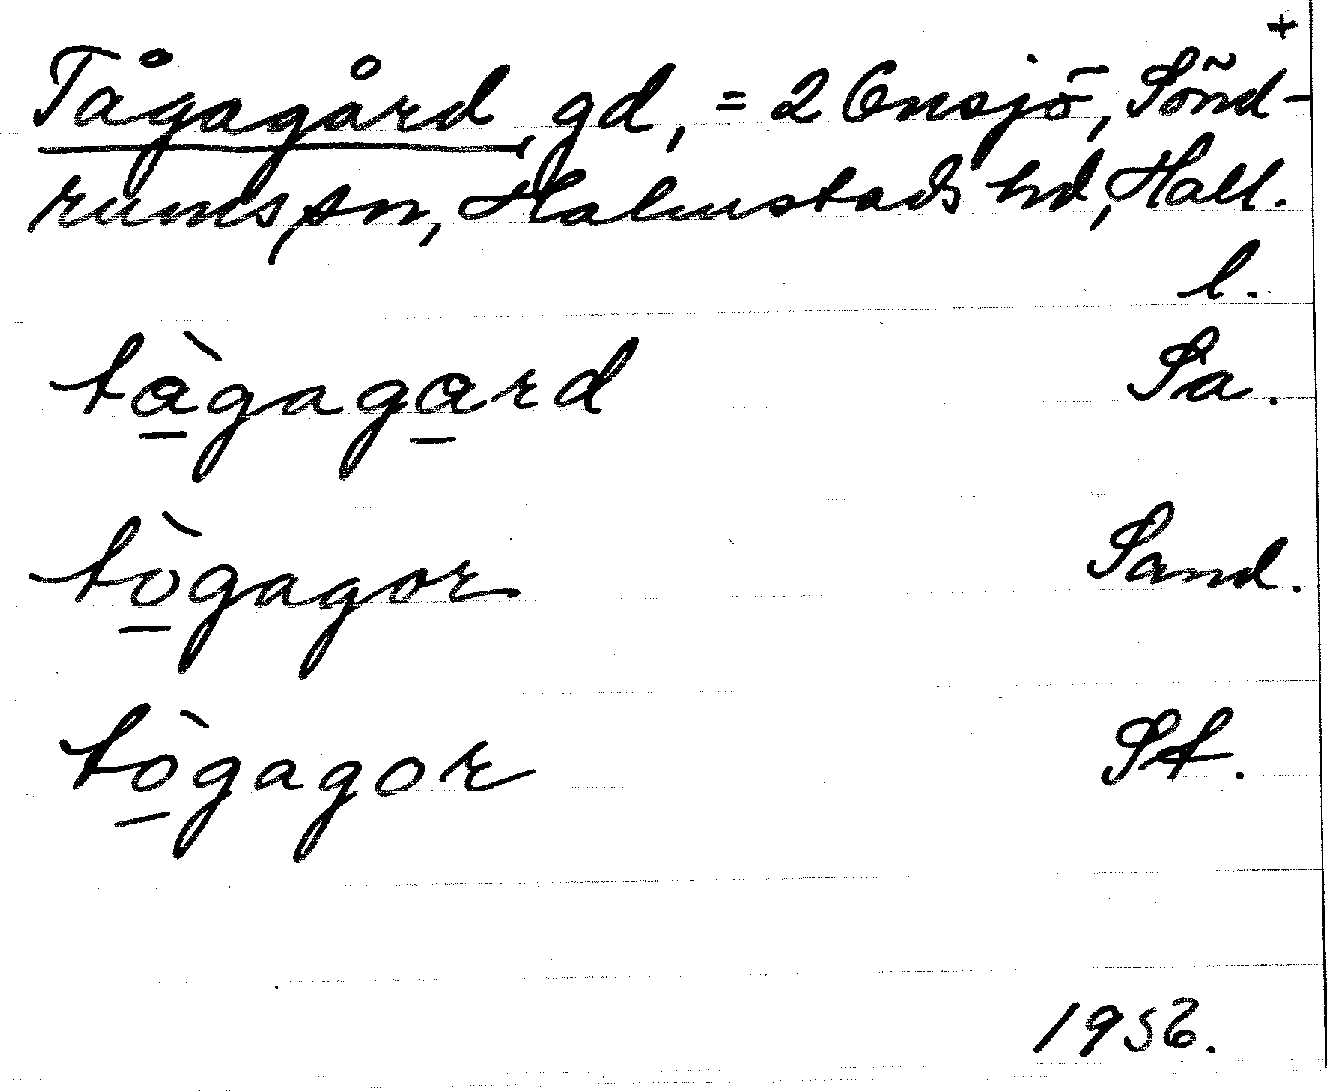 +
Tågagård, gd, = 2 Ensjö, Sönd-
rums sn, Halmstads hd, Hall.
l.
tàgagard Sa.
tògagor Sand.
tògagor St.
1956.